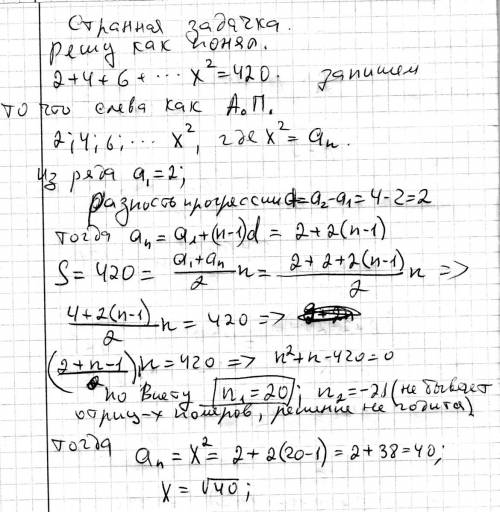 Странная задачка.
Решу как понял.
2+4+6+ ··· x²=420. запишем
то что слева как А.П.
2; 4; 6; ··· x², где x² = aₙ.
Из ряда a₁=2;
Разность прогрессии d=a₂-a₁=4-2=2
тогда aₙ=a₁+(n-1)d = 2+2(n-1)
S=420= (a₁+aₙ)/2 n = (2+2+2(n-1))/2 n =>
(4+2(n-1))/2 n = 420 =>
(2+n-1)n=420 => n²+n-420=0
по Виету n₁=20; n₂=-21 (не бывает
отриц-х номеров, решение не годится)
тогда
aₙ = x² = 2+2(20-1)=2+38=40;
x=√40;